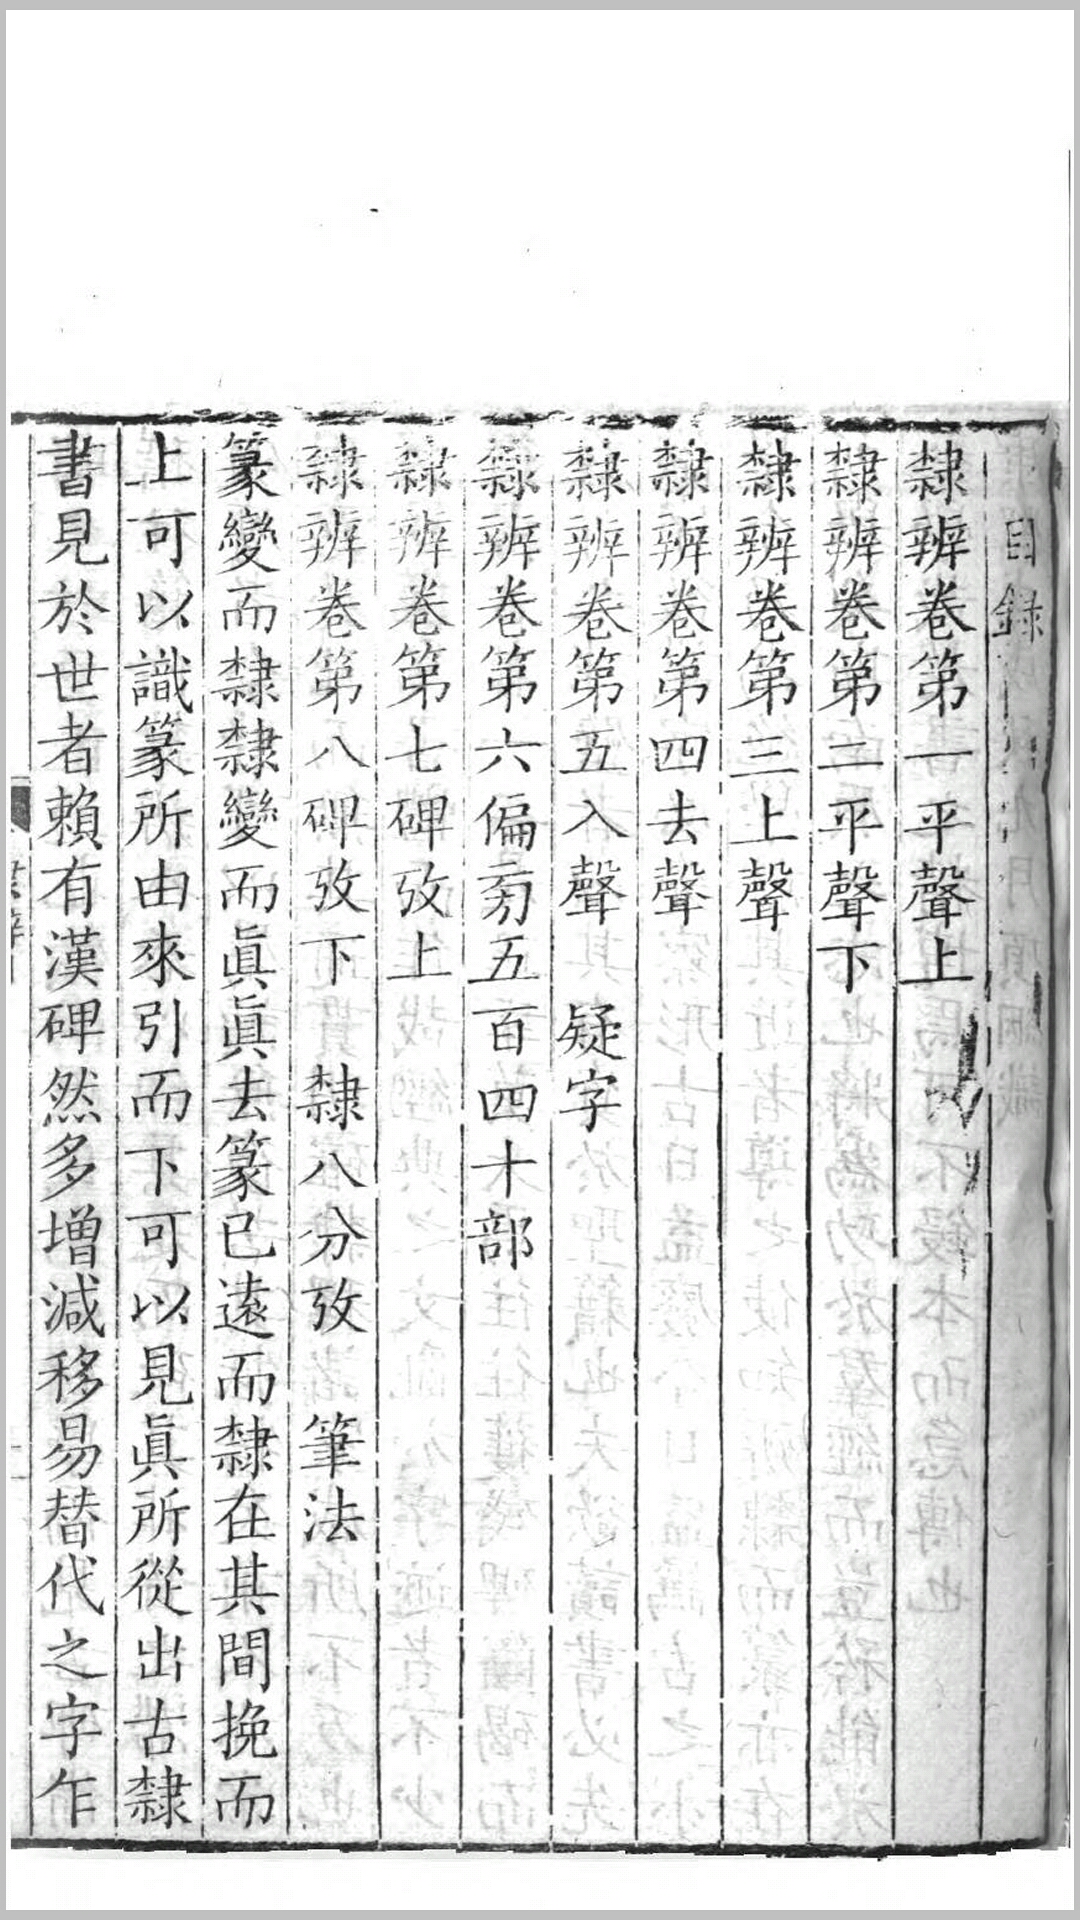 目録
隸辨卷第一平聲上
隸辨卷第二平聲下
隸辨卷第三上聲
隸辨卷第四去聲
隸辨卷第五入聲 疑字
隸辨卷第六偏旁五百四十部
隸辨卷第七碑攷上
隸辨卷第八碑攷下 隸八分攷 筆法
篆變而隸隸變而眞眞去篆已遠而隸在其間挽而
上可以識篆所由來引而下可以見眞所從出古隸
書見於世者賴有漢碑然多增減移易替代之字乍